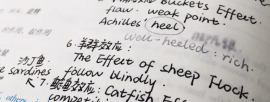 Buckets Effect.
flaw. weak point.
Achilles' heel
well-heeled: rich.
6. 羊群效应:
The Effect of sheep Flock.
沙丁鱼
sardines follow blindly.
7. 鲶鱼效应: Catfish Eff
others